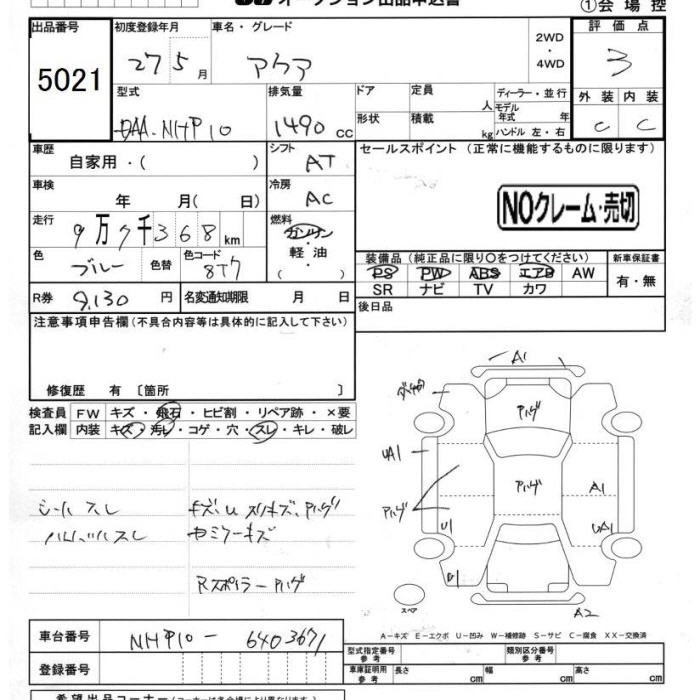 ①会場控
オークション出品申込書
出品番号
5021
初度登録年月
27 5月
車名・グレード
アクア
2WD
・
4WD
評価点
3
型式
DAA-NHP10
排気量
1490 cc
ドア
形状
定員 人
積載 kg
ディーラー・並行
モデル年式 年
ハンドル 左・右
外装 内装
C C
車歴
自家用・( )
シフト
AT
セールスポイント(正常に機能するものに限ります)
NOクレーム・売切
車検
年 月( 日)
冷房
AC
走行
9万7千368km
燃料
ガソリン
・
軽油
・
( )
色
ブルー
色替
色コード
8T7
装備品(純正品に限り○をつけてください)
PS PW ABS エアB AW
SR ナビ TV カワ
新車保証書
有・無
R券 9,130 円
名変通知期限 月 日
後日品
注意事項申告欄(不具合内容等は具体的に記入して下さい)
修復歴 有〔箇所 〕
検査員記入欄
FW キズ・飛石・ヒビ割・リペア跡・×要
内装 キズ・汚レ・コゲ・穴・スレ・キレ・破レ
シートスレ
キズ、U スリキズ、ハゲ
ハンドルスレ
セミラーキズ
Rスポイラーハゲ
A1
ハゲ
UA1
ハゲ
ハゲ
A1
U1
UA1
U1
A2
スペア
A-キズ E-エクボ U-凹み W-補修跡 S-サビ C-腐食 XX-交換済
車台番号 NHP10-6403671
登録番号
型式指定番号 参考
類別区分番号 参考
車庫証明用 参考 長さ cm 幅 cm 高さ cm
希望出品コーナー(コーナーは各会場により異なります。)